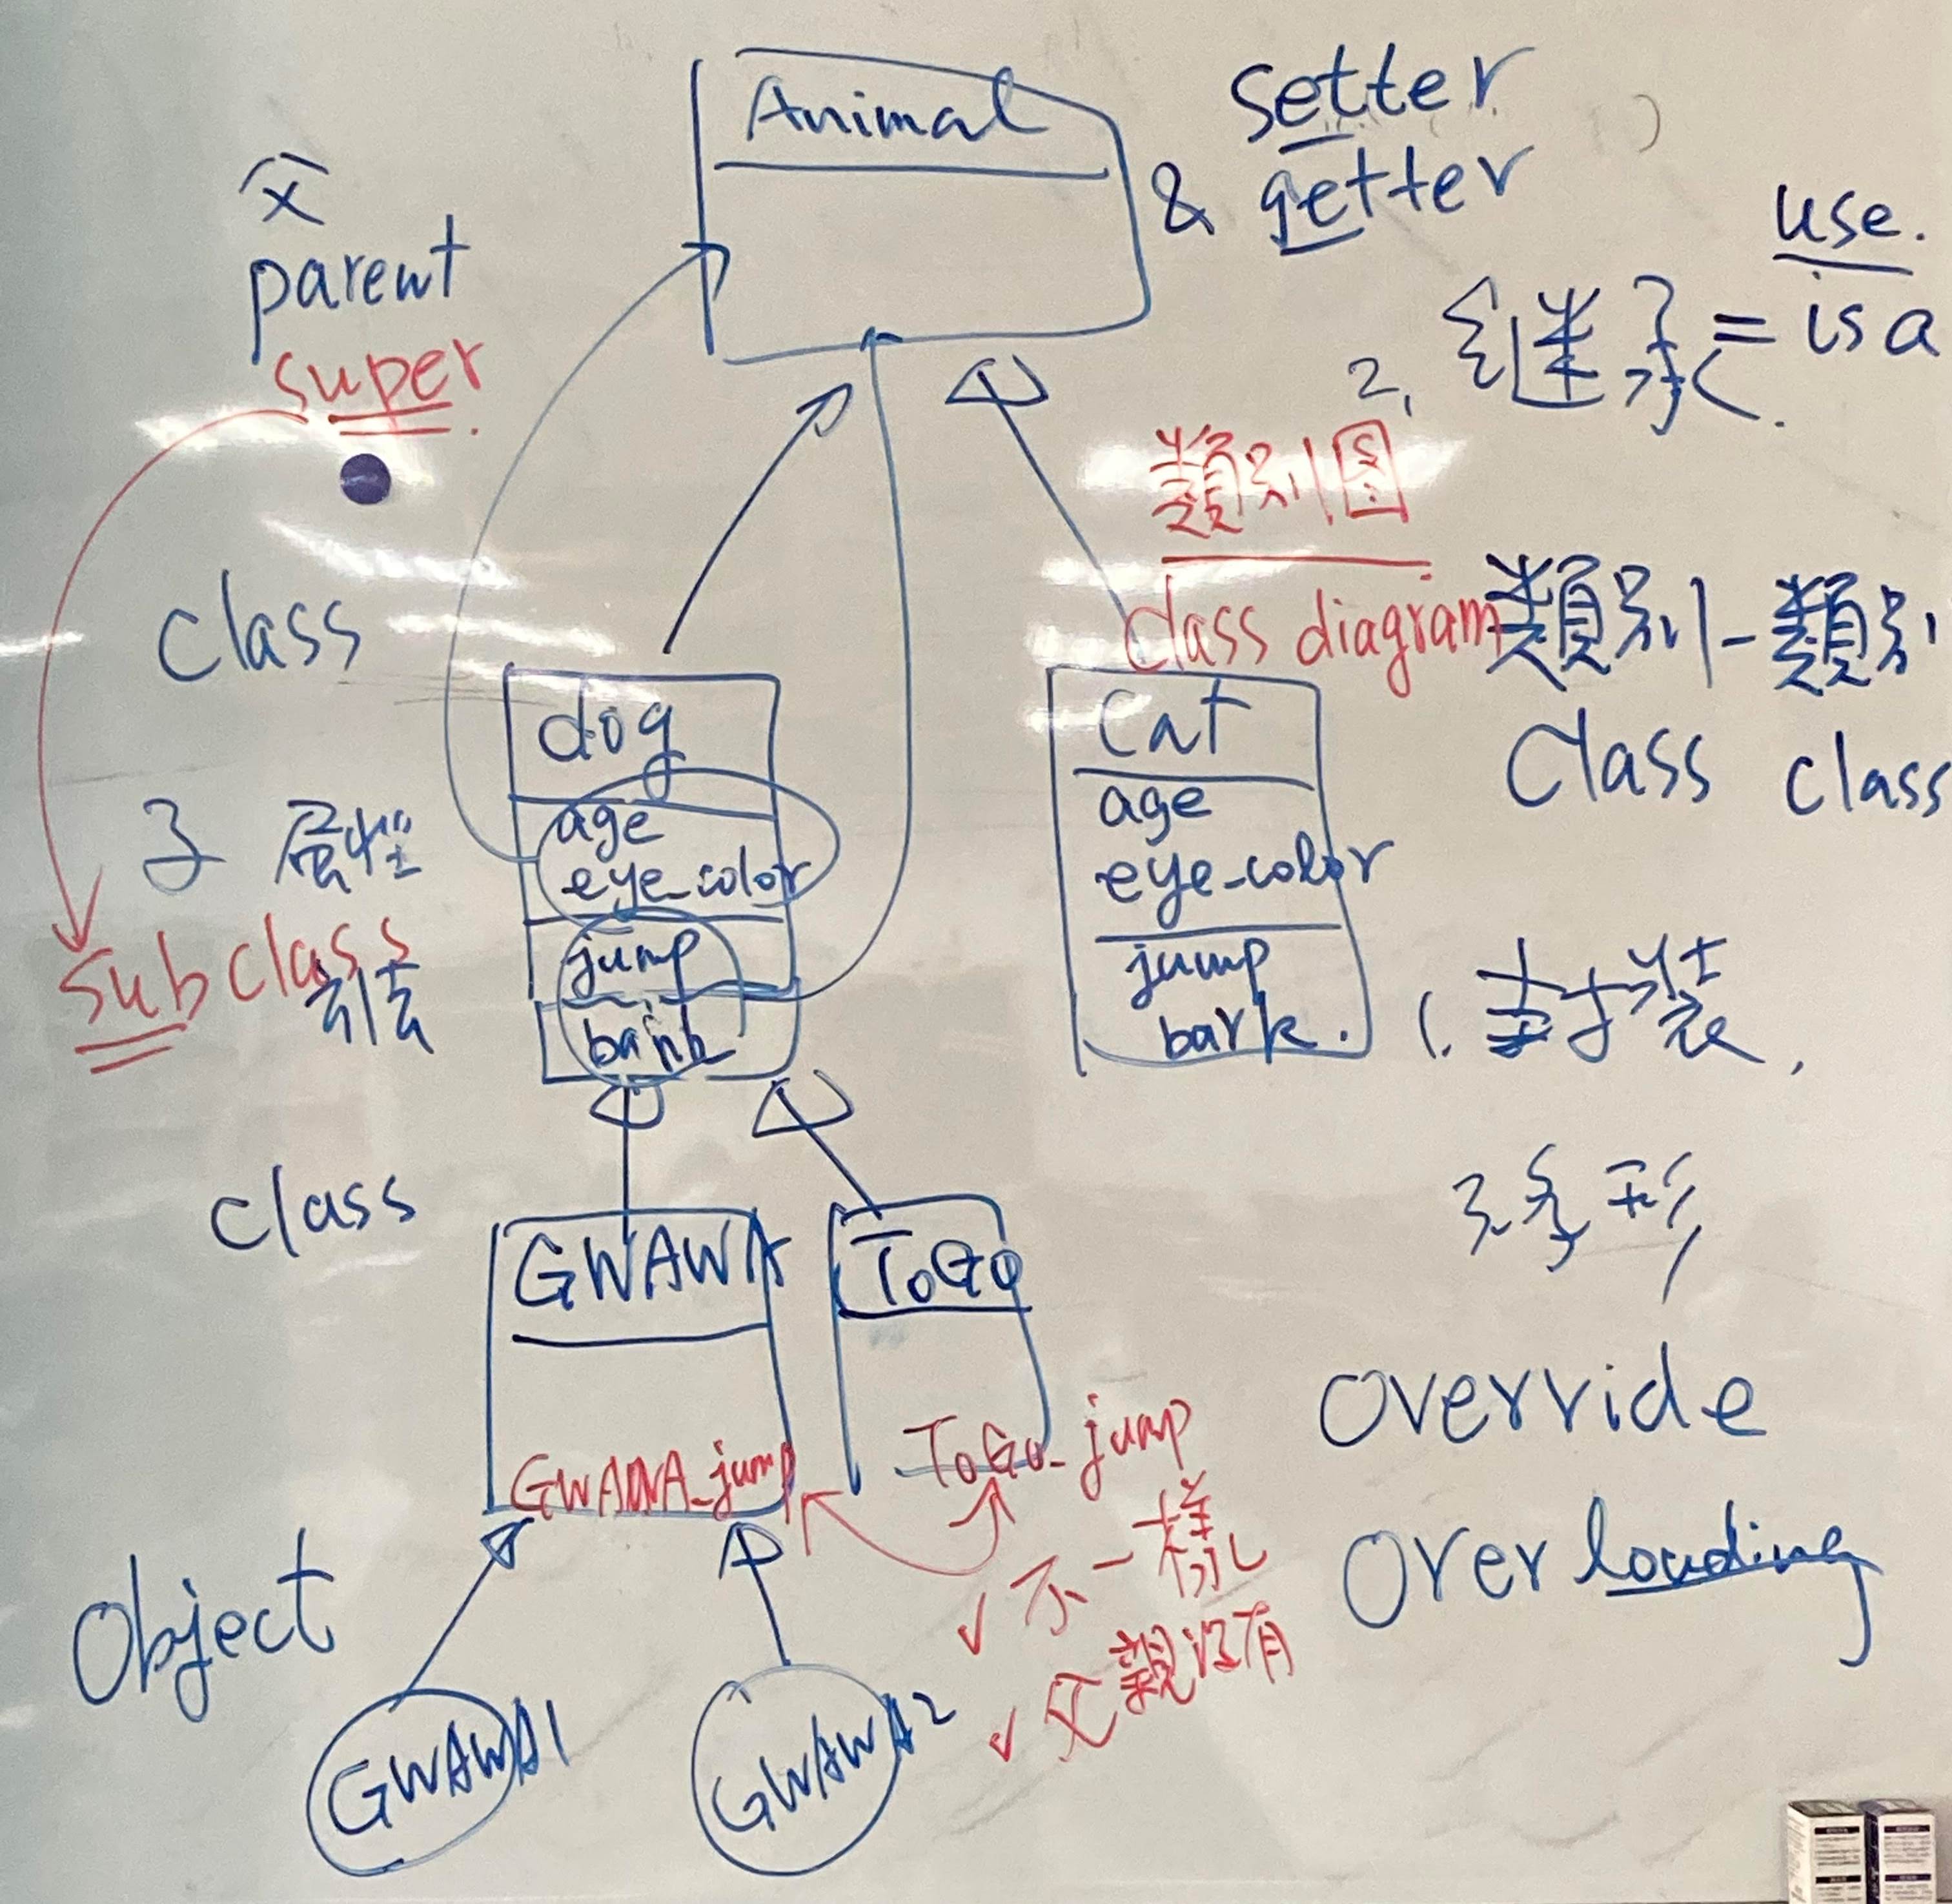 Animal
setter
& getter
父
parent
super
use.
2. 繼承 = is a
類別圖
class diagram
類別-類別
class class
class
dog
age
eye_color
jump
bark
cat
age
eye_color
jump
bark.
子 屬性
subclass
方法
1. 封裝,
3. 多形
class
GWAWA
ToGo
GWAWA_jump
ToGo_jump
override
overloading
✓ 不一樣
✓ 父親沒有
object
GWAWA1
GWAWA2